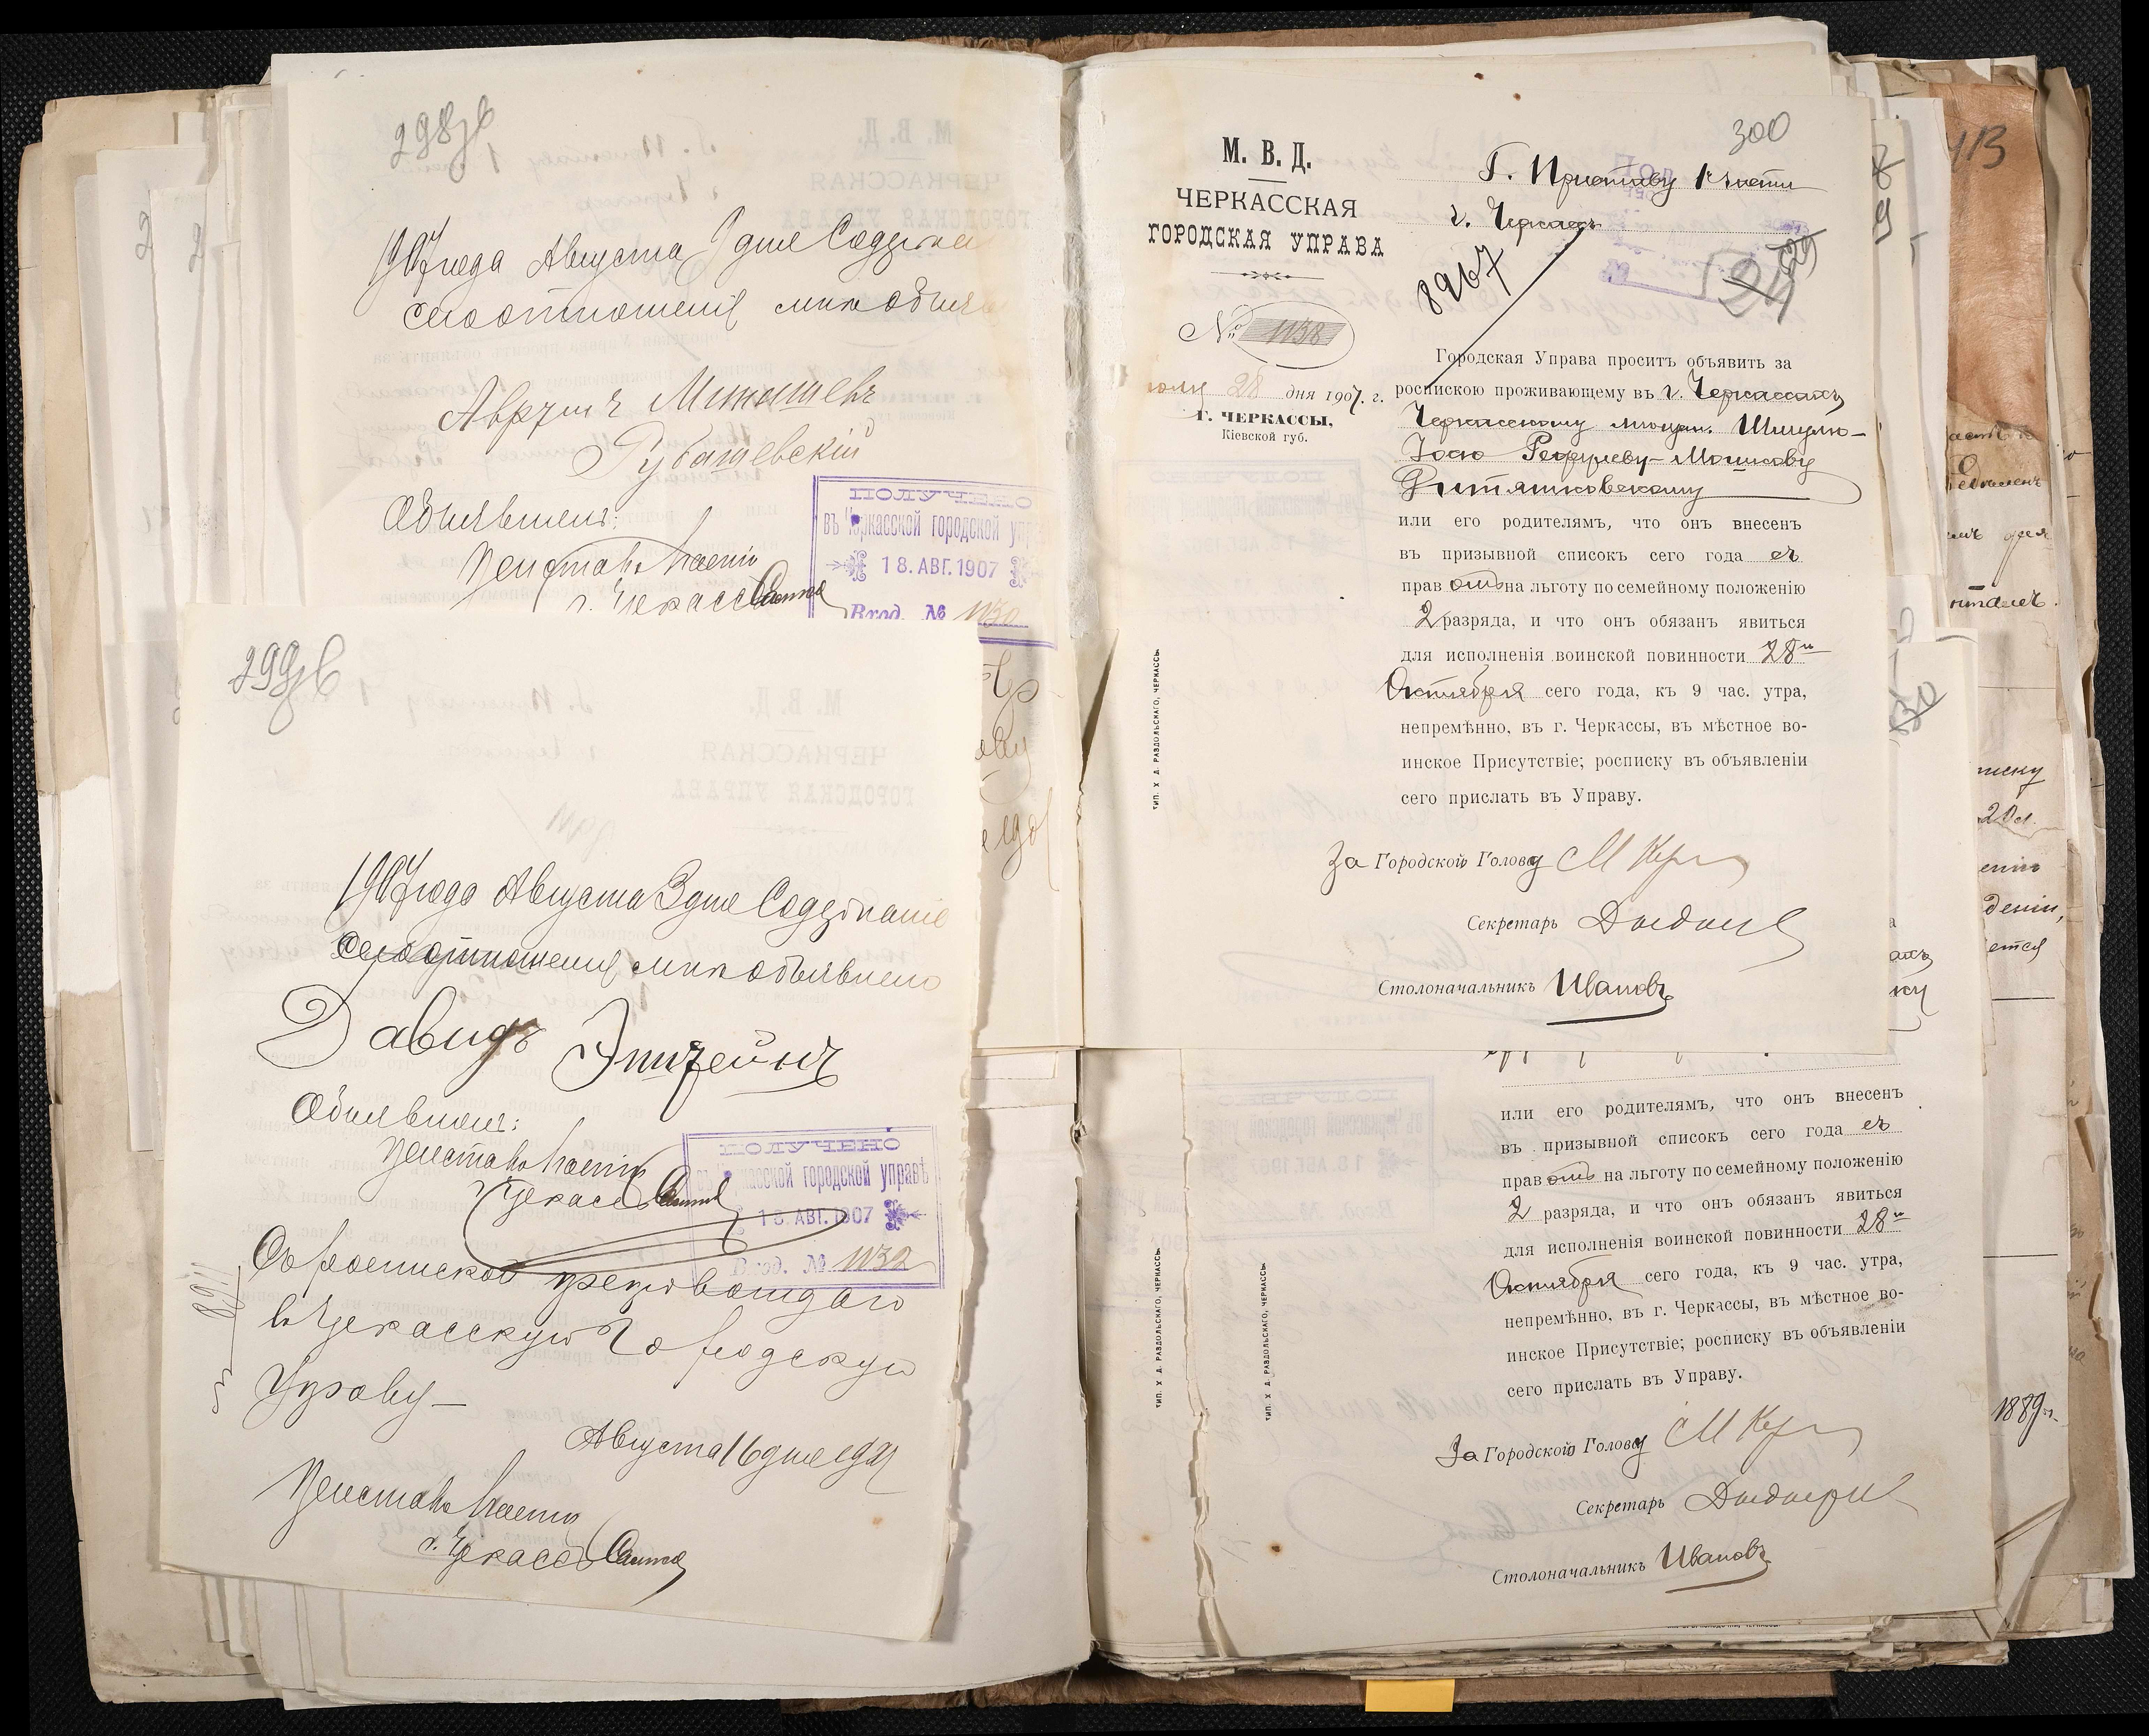 298об
1907 года Августа 9 дня Содержа
сего отношения мне объявл
Аврумъ Митишевъ
Рубашевскій
Объявилъ:
Приставъ 1 части
г. Черкассъ
ПОЛУЧЕНО
въ Черкасской городской упр
18. АВГ. 1907
Вход. №
299об
1907 года Августа 3 дня Содержаніе
сего отношения мне объявлено
Давидъ Эпштейнъ
Объявилъ:
Приставъ 1 части
г. Черкассъ
ПОЛУЧЕНО
въ Черкасской городской управѣ
18. АВГ. 1907
Вход. № 1132
Съ роспиской препровождаю
въ Черкасскую Городскую
Управу
Августа 16 дня 1907
Приставъ 1 части
г. Черкассъ
300
М. В. Д.
ЧЕРКАССКАЯ
ГОРОДСКАЯ УПРАВА
№ 1138
юля 28 дня 1907. г.
Г. ЧЕРКАССЫ,
Кіевской губ.
Г. Приставу 1 части
г. Черкассъ
8967
Городская Управа проситъ объявить за
роспискою проживающему въ г. Черкассахъ
Черкасскому мѣщан. Шмулю-
Мошкову
Ритяшковскому
или его родителямъ, что онъ внесенъ
въ призывной списокъ сего года съ
правомъ на льготу по семейному положенію
2 разряда, и что онъ обязанъ явиться
для исполненія воинской повинности 28го
Октября сего года, къ 9 час. утра,
непремѣнно, въ г. Черкассы, въ мѣстное во-
инское Присутствіе; росписку въ объявленіи
сего прислать въ Управу.
За Городской Голову
Секретарь
Столоначальникъ Ивановъ
ТИП. Х. Д. РАЗДОЛЬСКАГО, ЧЕРКАССЫ.
или его родителямъ, что онъ внесенъ
въ призывной списокъ сего года съ
правомъ на льготу по семейному положенію
2 разряда, и что онъ обязанъ явиться
для исполненія воинской повинности 28го
Октября сего года, къ 9 час. утра,
непремѣнно, въ г. Черкассы, въ мѣстное во-
инское Присутствіе; росписку въ объявленіи
сего прислать въ Управу.
За Городской Голову
Секретарь
Столоначальникъ Ивановъ
ТИП. Х. Д. РАЗДОЛЬСКАГО, ЧЕРКАССЫ.
ТИП. Х. Д. РАЗДОЛЬСКАГО, ЧЕРКАССЫ.
1889 г.